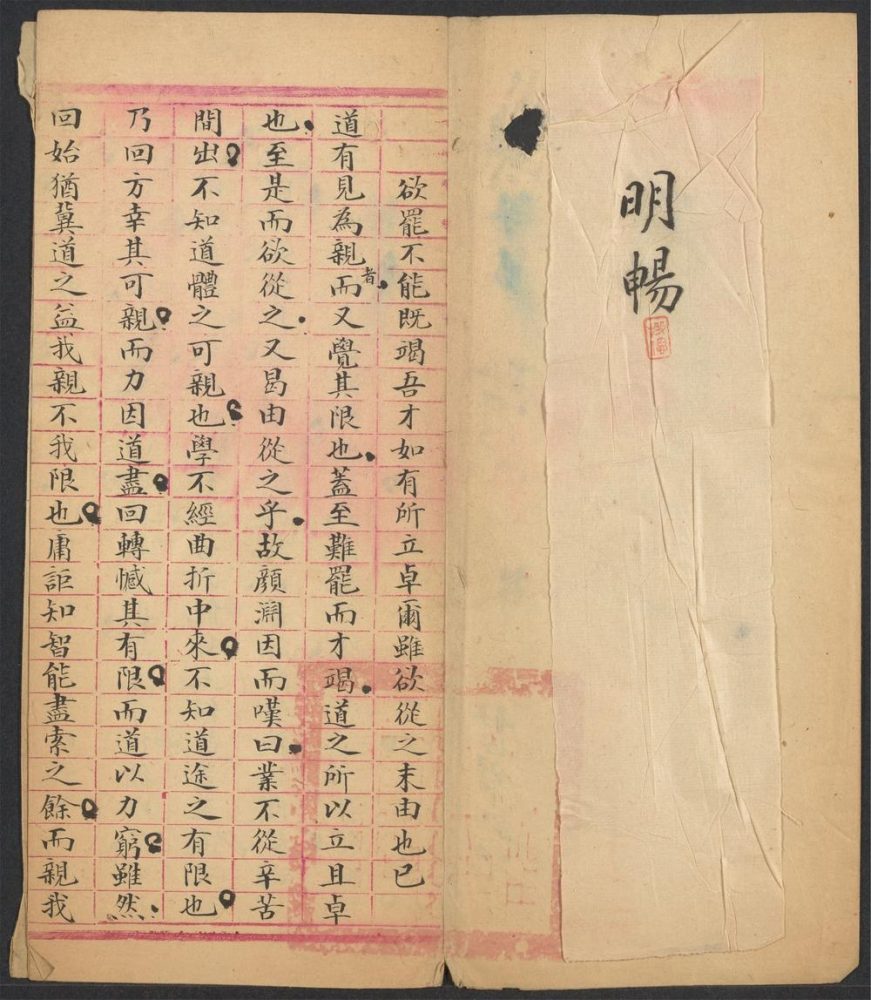 明暢
欲罷不能既竭吾才如有所立卓爾雖欲從之末由也已
道有見為親者而又覺其限也蓋至難罷而才竭道之所以立且卓
也至是而欲從之又曷由從之乎故顏淵因而嘆曰業不從辛苦
間出不知道體之可親也學不經曲折中來不知道途之有限也
乃回方幸其可親而力因道盡回轉憾其有限而道以力窮雖然
回始猶冀道之益我親不我限也庸詎知智能盡索之餘而親我